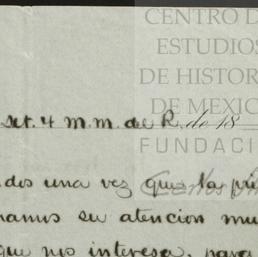 CENTRO D
ESTUDIOS
DE HISTOR
DE MEXIC
FUNDACI
set. 4 m.m. de R. de 18
dos una vez que la pre
namos su atencion mu
que nos interesa, para